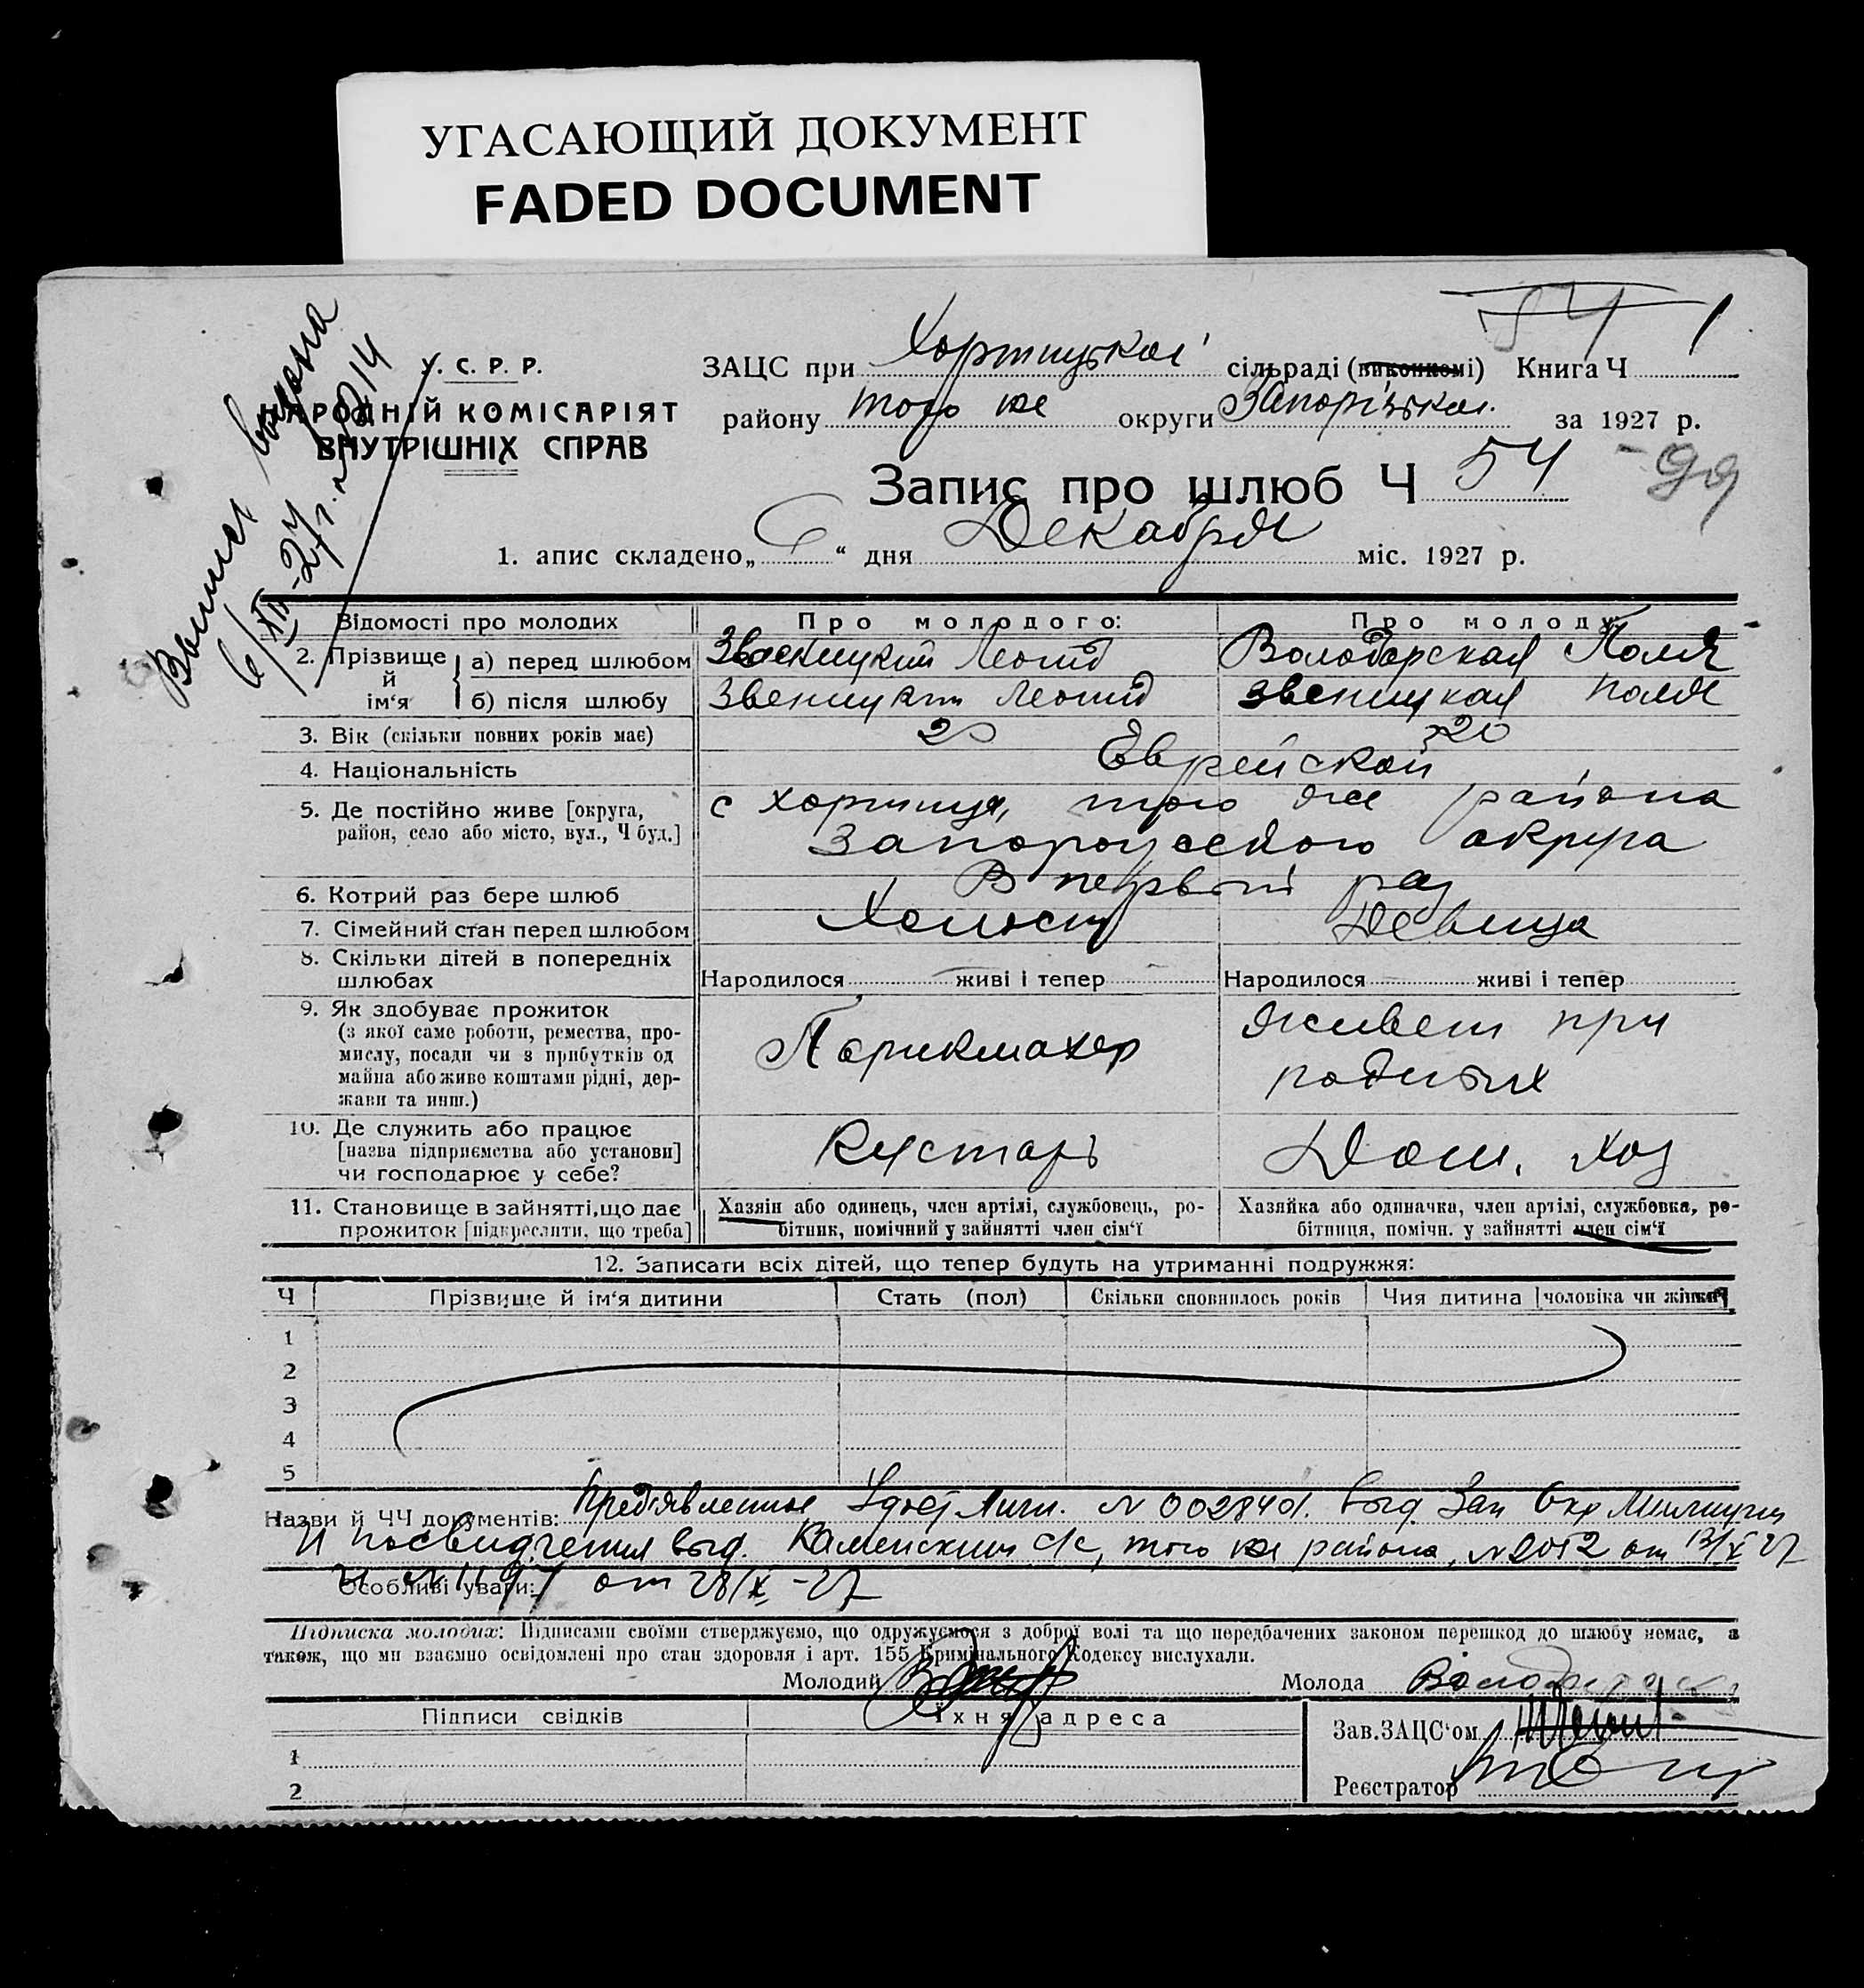 УГАСАЮЩИЙ ДОКУМЕНТ
FADED DOCUMENT
Выпись выдана
6/XII-27 г. № 214
У. С. Р. Р.
НАРОДНІЙ КОМІСАРІЯТ
ВНУТРІШНІХ СПРАВ
54 1
ЗАЦС при Хортицької сільраді (виконкомі) Книга Ч
району того же округи Запорізької за 1927 р.
Запис про шлюб Ч 54
99
1. апис складено „6“ дня Декабря міс. 1927 р.
Відомості про молодих Про молодого: Про молоду:
2. Прізвище й ім‘я
а) перед шлюбом Звеницкий Леонид Володарская Поля
б) після шлюбу Звеницкий Леонид Звеницкая Поля
3. Вік (скільки повних років має) 20 20
4. Національність Еврейской
5. Де постійно живе [округа, с Хортица, того же района
район, село або місто, вул., Ч буд.] Запорожского округа
6. Котрий раз бере шлюб В первый раз
7. Сімейний стан перед шлюбом Холост Девица
8. Скільки дітей в попередніх
шлюбах Народилося живі і тепер Народилося живі і тепер
9. Як здобуває прожиток
(з якої саме роботи, ремества, про-
мислу, посади чи з прибутків од
майна або живе коштами рідні, дер-
жави та инш.)
Парикмахер живет при
родитих
10. Де служить або працює
[назва підприємства або установи]
чи господарює у себе?
Кустарь Дом. хоз
11. Становище в зайнятті,що дає
прожиток [підкреслити, що треба]
Хазяін або одинець, член артілі, службовець, ро-
бітник, помічний у зайнятті член сім‘ї
Хазяйка або одиначка, член артілі, службовка, ро-
бітниця, помічн. у зайнятті член сім‘ї
12. Записати всіх дітей, що тепер будуть на утриманні подружжя:
Ч Прізвище й ім‘я дитини Стать (пол) Скільки сповнилось років Чия дитина [чоловіка чи жінки]
1
2
3
4
5
Назви й ЧЧ документів: Предявленные Удост Личн. № 002840 выд. Зап Окр Милиции
и посвидчения выд. Каменским с/с, того же района, № 2052 от 12/X 27
Особливі уваги: и № 1197 от 28/X-27
Підписка молодих: Підписами своїми стверджуємо, що одружуємося з доброї волі та що передбачених законом перешкод до шлюбу немає, а
також, що ми взаємно освідомлені про стан здоровля і арт. 155 Кримінального Кодексу вислухали.
Молодий Молода
Підписи свідків Їхня адреса
Зав.ЗАЦС‘ом
1
Реєстратор
2